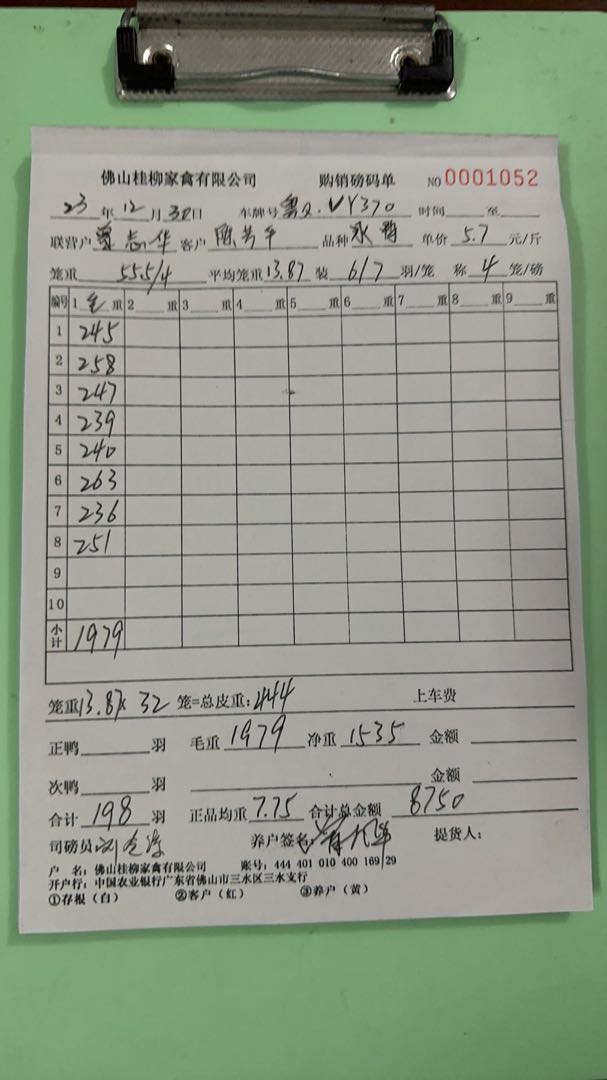 佛山桂柳家禽有限公司 购销磅码单 NO 0001052
23年12月30日 车牌号 粤Q.VY370 时间 至
联营户 志华 客户 陈芳平 品种 水鸭 单价 5.7 元/斤
笼重 55.5/4 平均笼重 13.87 装 6/7 羽/笼 称 4 笼/磅
编号 1 毛 重 2 重 3 重 4 重 5 重 6 重 7 重 8 重 9 重
1 245
2 258
3 247
4 239
5 240
6 263
7 236
8 251
9
10
小计 1979
笼重13.87× 32 笼=总皮重:444 上车费
正鸭 羽 毛重 1979 净重 1535 金额
次鸭 羽 金额
合计 198 羽 正品均重 7.75 合计总金额 8750
司磅员: 养户签名: 提货人:
户 名:佛山桂柳家禽有限公司 账号:444 401 010 400 169 29
开户行:中国农业银行广东省佛山市三水区三水支行
①存根(白) ②客户(红) ③养户(黄)